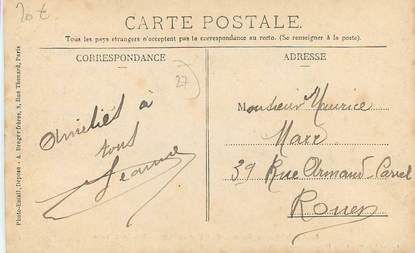 20 €
CARTE POSTALE.
Tous les pays étrangers n'acceptent pas la correspondance au recto. (Se renseigner à la poste).
CORRESPONDANCE
ADRESSE
27
Amitiés à
tous
Jeanne
Monsieur Maurice
Marc
39 Rue Armand-Carrel
Rouen
Photo-Email, Déposé - A. Breger frères, 9, Rue Thénard, Paris